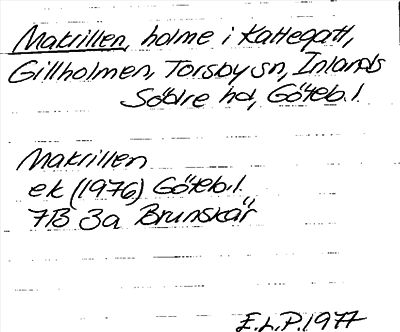 Makrillen, holme i Kattegatt,
Gillholmen, Torsby sn, Inlands
Södre hd, Göteb. l.
Makrillen
ek (1976) Göteb. l.
7B 3a Brunskär
E.L.P. 1977